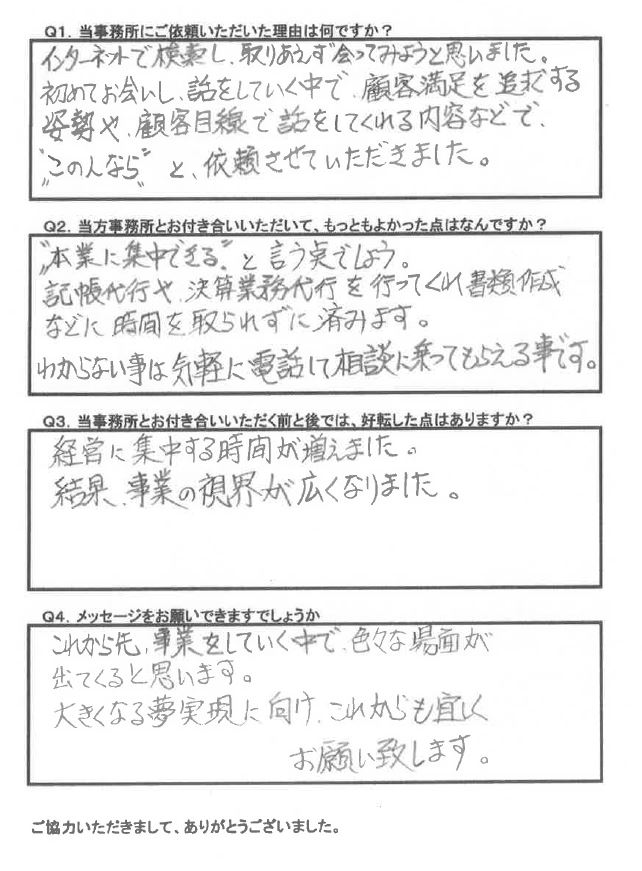 Q1. 当事務所にご依頼いただいた理由は何ですか？
インターネットで検索し、取りあえず会ってみようと思いました。
初めてお会いし、話をしていく中で、顧客満足を追求する
姿勢や、顧客目線で話をしてくれる内容などで、
〝このんなら〟と、依頼させていただきました。
Q2. 当方事務所とお付き合いいただいて、もっともよかった点はなんですか？
〝本業に集中できる〟と言う点でしょう。
記帳代行や、決算業務代行を行ってくれ書類作成
などに時間を取られずに済みます。
わからない事は気軽に電話して相談に乗ってもらえる事です。
Q3. 当事務所とお付き合いいただく前と後では、好転した点はありますか？
経営に集中する時間が増えました。
結果、事業の視界が広くなりました。
Q4. メッセージをお願いできますでしょうか
これから先、事業をしていく中で、色々な場面が
出てくると思います。
大きくなる夢実現に向け、これからも宜しく
お願い致します。
ご協力いただきまして、ありがとうございました。